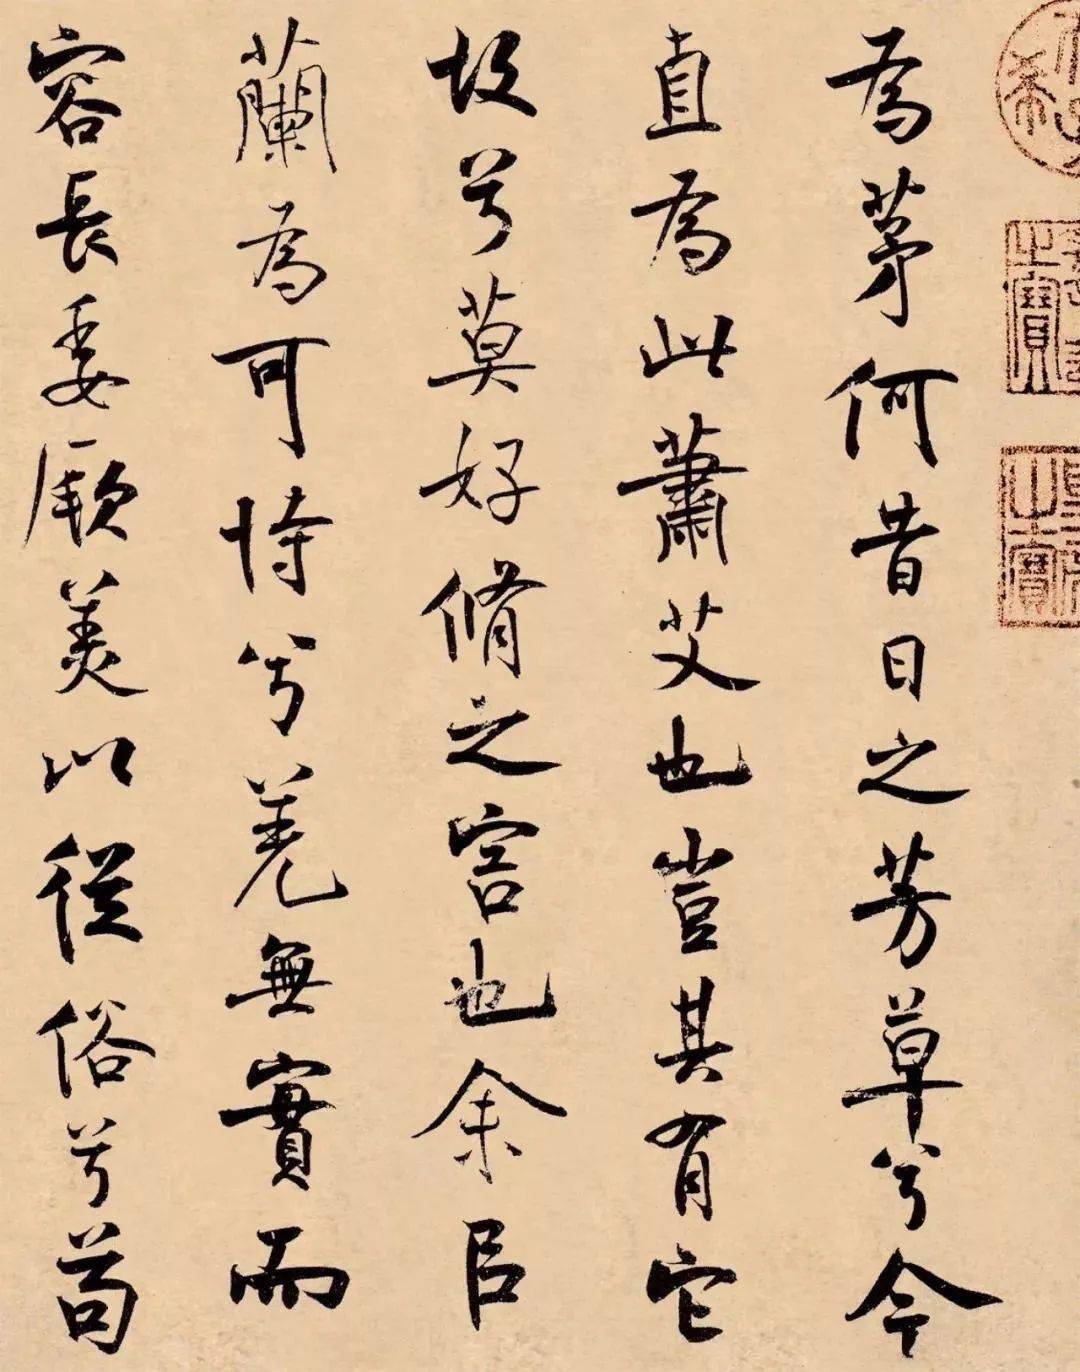 為茅何昔日之芳草兮今
直為此蕭艾也豈其有它
故兮莫好脩之害也余㠯
蘭為可恃兮羌無實而
容長委厥美以從俗兮苟
希
之寶
之寶